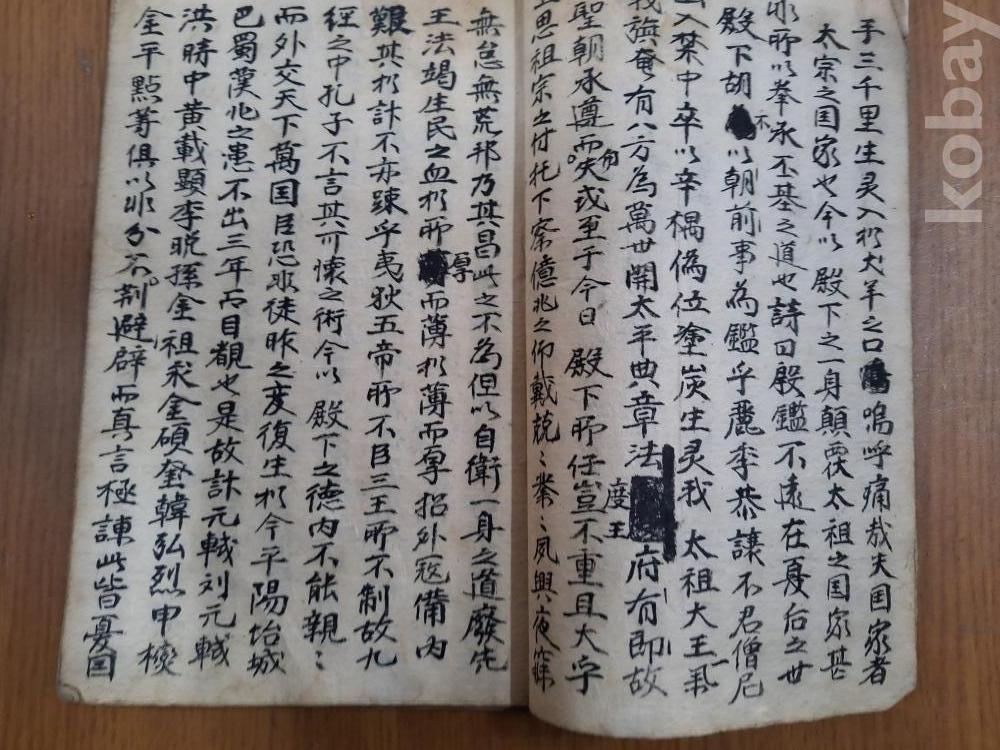 手三千里生灵入於犬羊之口嗚呼痛哉夫国家者
太宗之国家也今以 殿下之一身顛覆太祖之国家甚
非所以奉承丕基之道也詩曰殷鑑不遠在夏后之世
殿下胡不以朝前事為鑑乎麗李恭讓不君僧尼
入禁中卒以辛禑偽位塗炭生灵我 太祖大王
我旗奄有八方為萬世開太平典章法度王府有即故
聖朝承遵而勿失式至于今日 殿下所任豈不重且大乎
上思祖宗之付托下察億兆之仰戴兢〻業〻夙興夜寐
無怠無荒邦乃其昌此之不為但以自衛一身之道廢先
王法竭生民之血於所厚而薄於薄而厚招外寇備內
艱其於計不亦踈乎夷狄五帝所不臣三王所不制故九
經之中孔子不言其可懷之術今以 殿下之德內不能親〻
而外交天下萬国臣恐非徒昨之変復生於今平陽坮城
巴蜀漢北之患不出三年而目覩也是故計元軾刘元軾
洪時中黄載顯李晚孫金祖永金碩奎韓弘烈申㰎
金平點等俱以非分不荆避辟而真言極諫此皆憂国
kobay